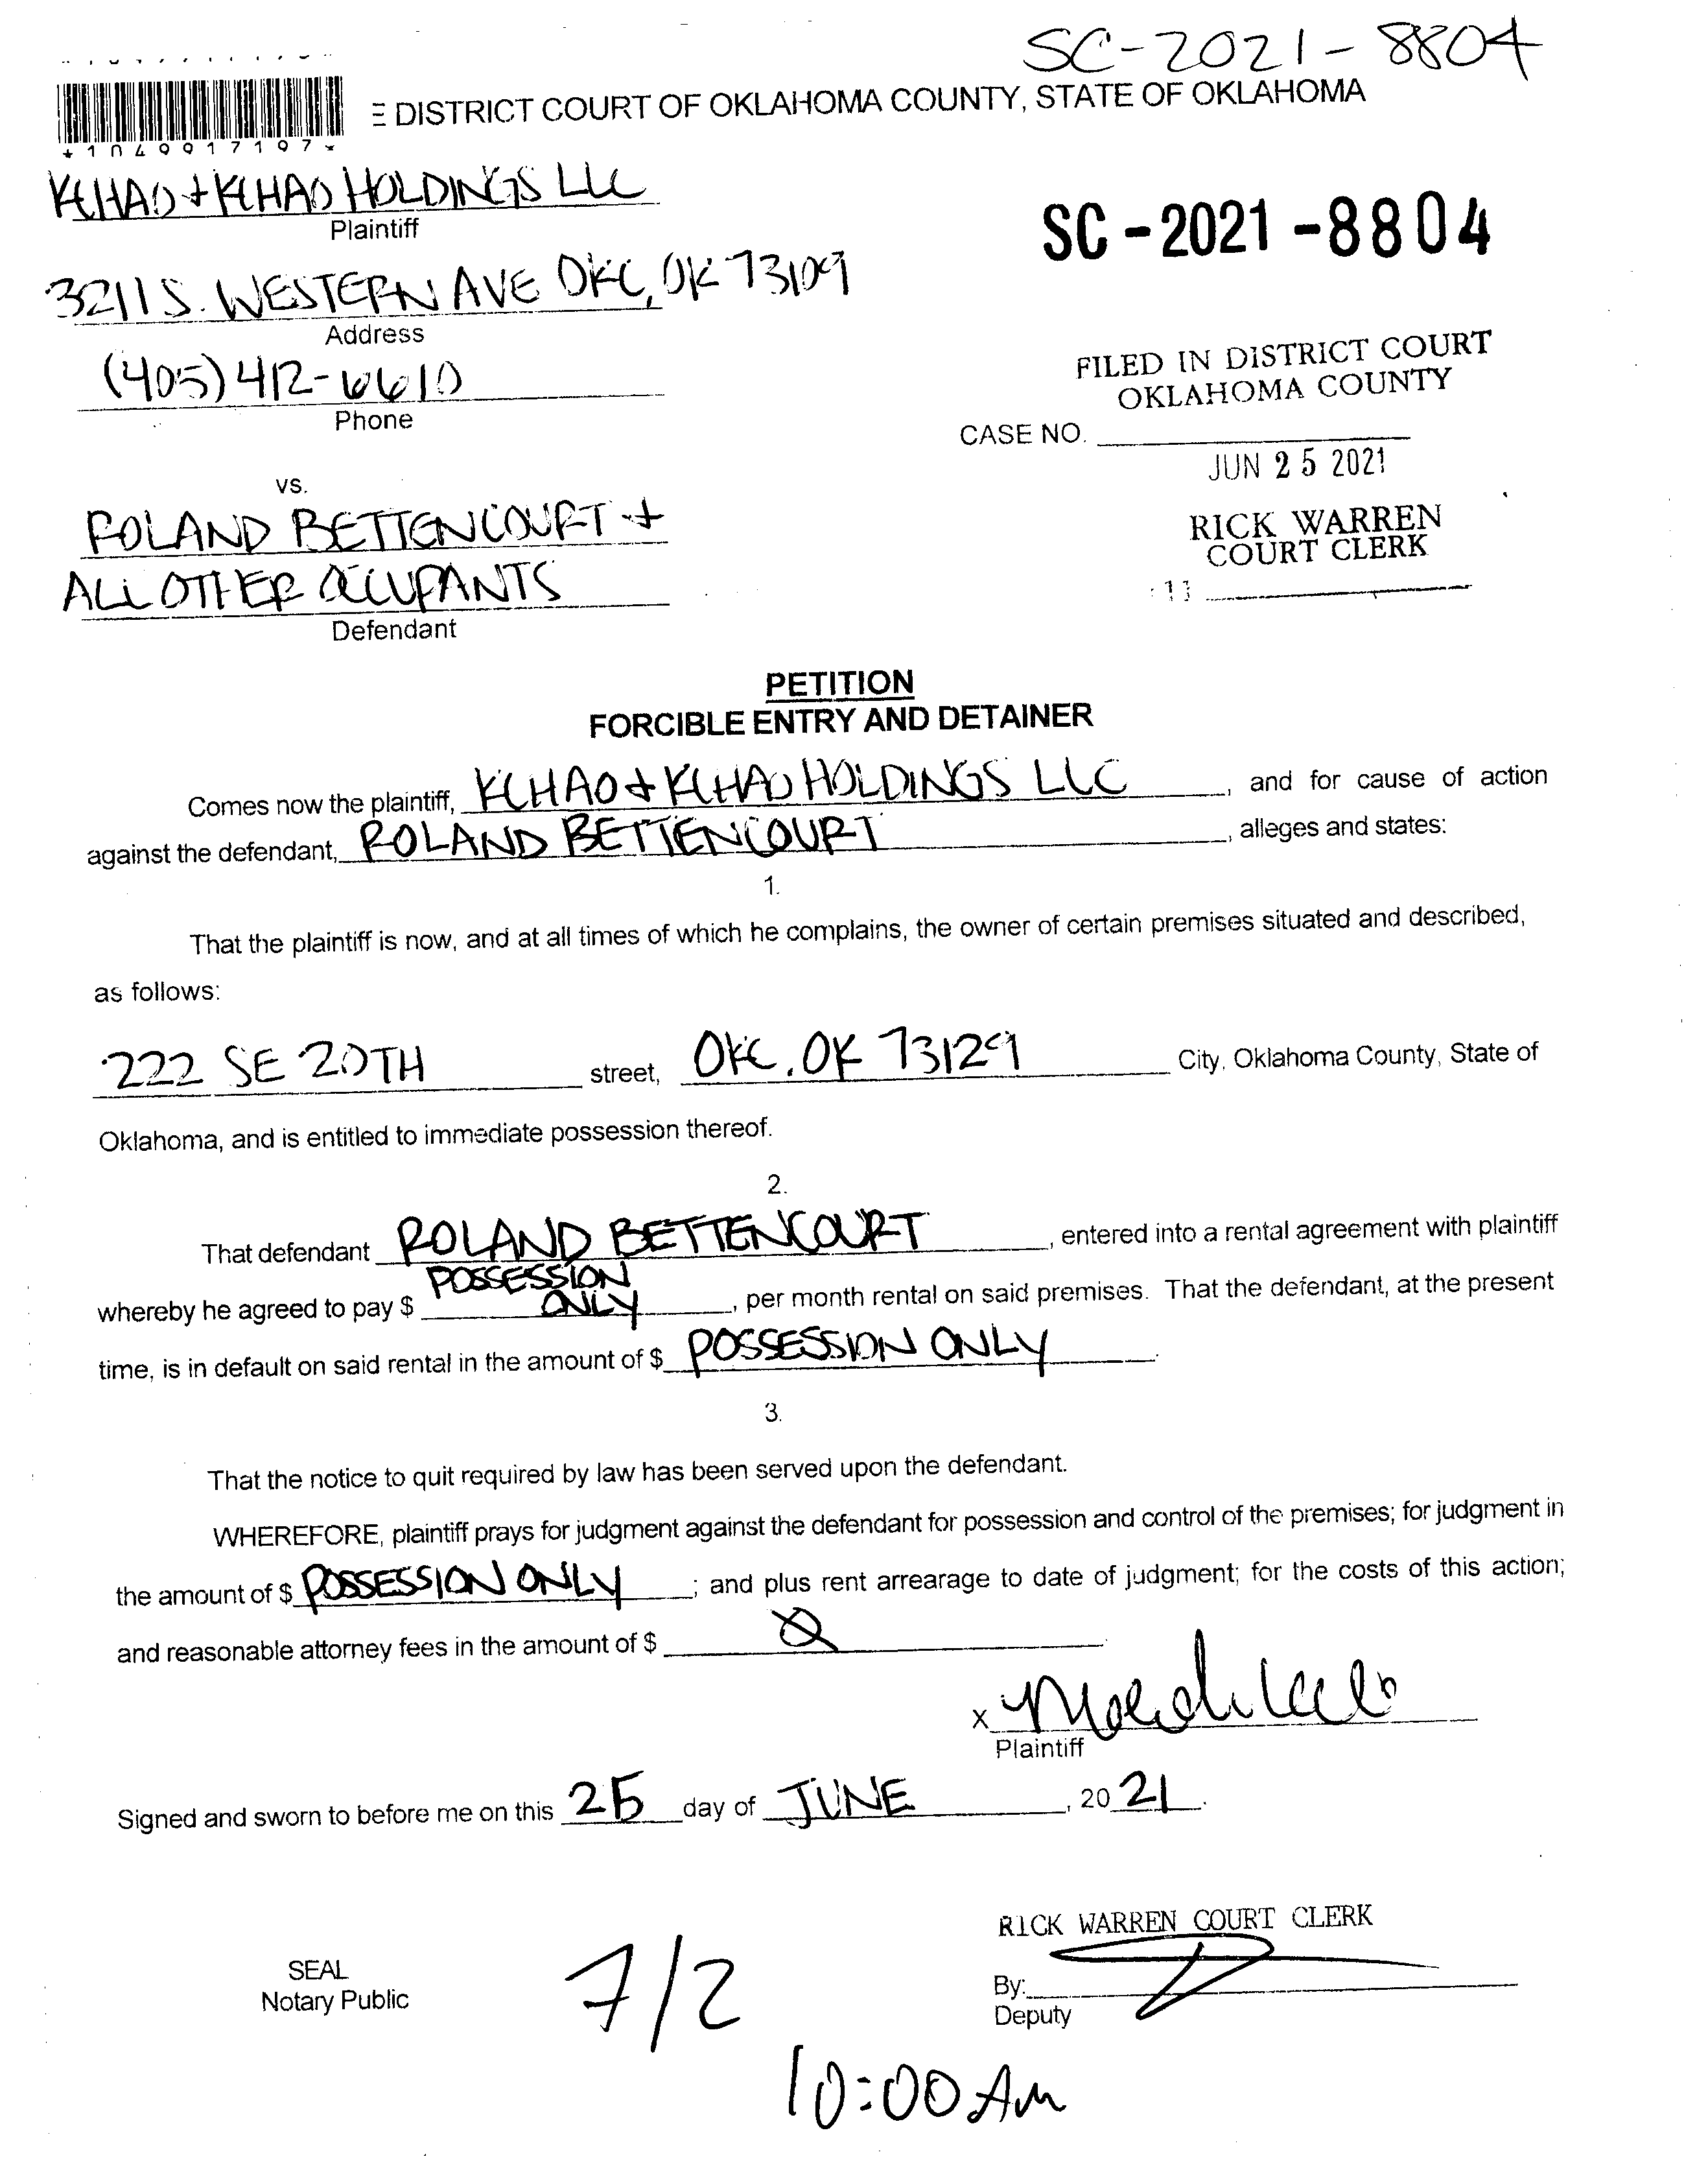 SC-2021-8804
E DISTRICT COURT OF OKLAHOMA COUNTY, STATE OF OKLAHOMA
*1049917197*
KCHAO + KCHAO HOLDINGS LLC
Plaintiff
SC-2021-8804
3211 S. WESTERN AVE OKC, OK 73109
Address
FILED IN DISTRICT COURT
OKLAHOMA COUNTY
(405) 412-6610
Phone
CASE NO.
JUN 25 2021
vs.
RICK WARREN
COURT CLERK
ROLAND BETTENCOURT +
ALL OTHER OCCUPANTS
Defendant
PETITION
FORCIBLE ENTRY AND DETAINER
Comes now the plaintiff, KCHAO + KCHAO HOLDINGS LLC, and for cause of action
against the defendant, ROLAND BETTENCOURT, alleges and states:
1.
That the plaintiff is now, and at all times of which he complains, the owner of certain premises situated and described,
as follows:
222 SE 20TH street, OKC, OK 73129 City, Oklahoma County, State of
Oklahoma, and is entitled to immediate possession thereof.
2.
That defendant ROLAND BETTENCOURT, entered into a rental agreement with plaintiff
whereby he agreed to pay $ POSSESSION ONLY, per month rental on said premises. That the defendant, at the present
time, is in default on said rental in the amount of $ POSSESSION ONLY.
3.
That the notice to quit required by law has been served upon the defendant.
WHEREFORE, plaintiff prays for judgment against the defendant for possession and control of the premises; for judgment in
the amount of $ POSSESSION ONLY; and plus rent arrearage to date of judgment; for the costs of this action;
and reasonable attorney fees in the amount of $
x
Plaintiff
Signed and sworn to before me on this 25 day of JUNE, 2021.
RICK WARREN COURT CLERK
SEAL
Notary Public
7/2
By:
Deputy
10:00 AM